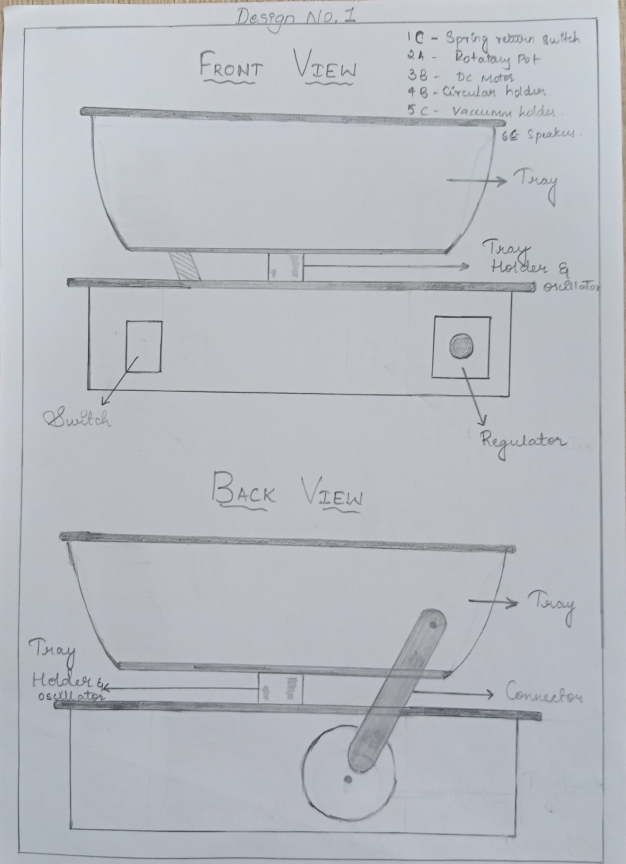 Design No. 1
1C - Spring return switch
2A - Rotatary Pot
3B - DC Motor
4B - Circular holder
5C - Vaccumm holder.
6C Speaker.
FRONT VIEW
Tray
Tray
Holder &
oscillator
Switch
Regulator
BACK VIEW
Tray
Tray
Holder &
oscillator
Connector